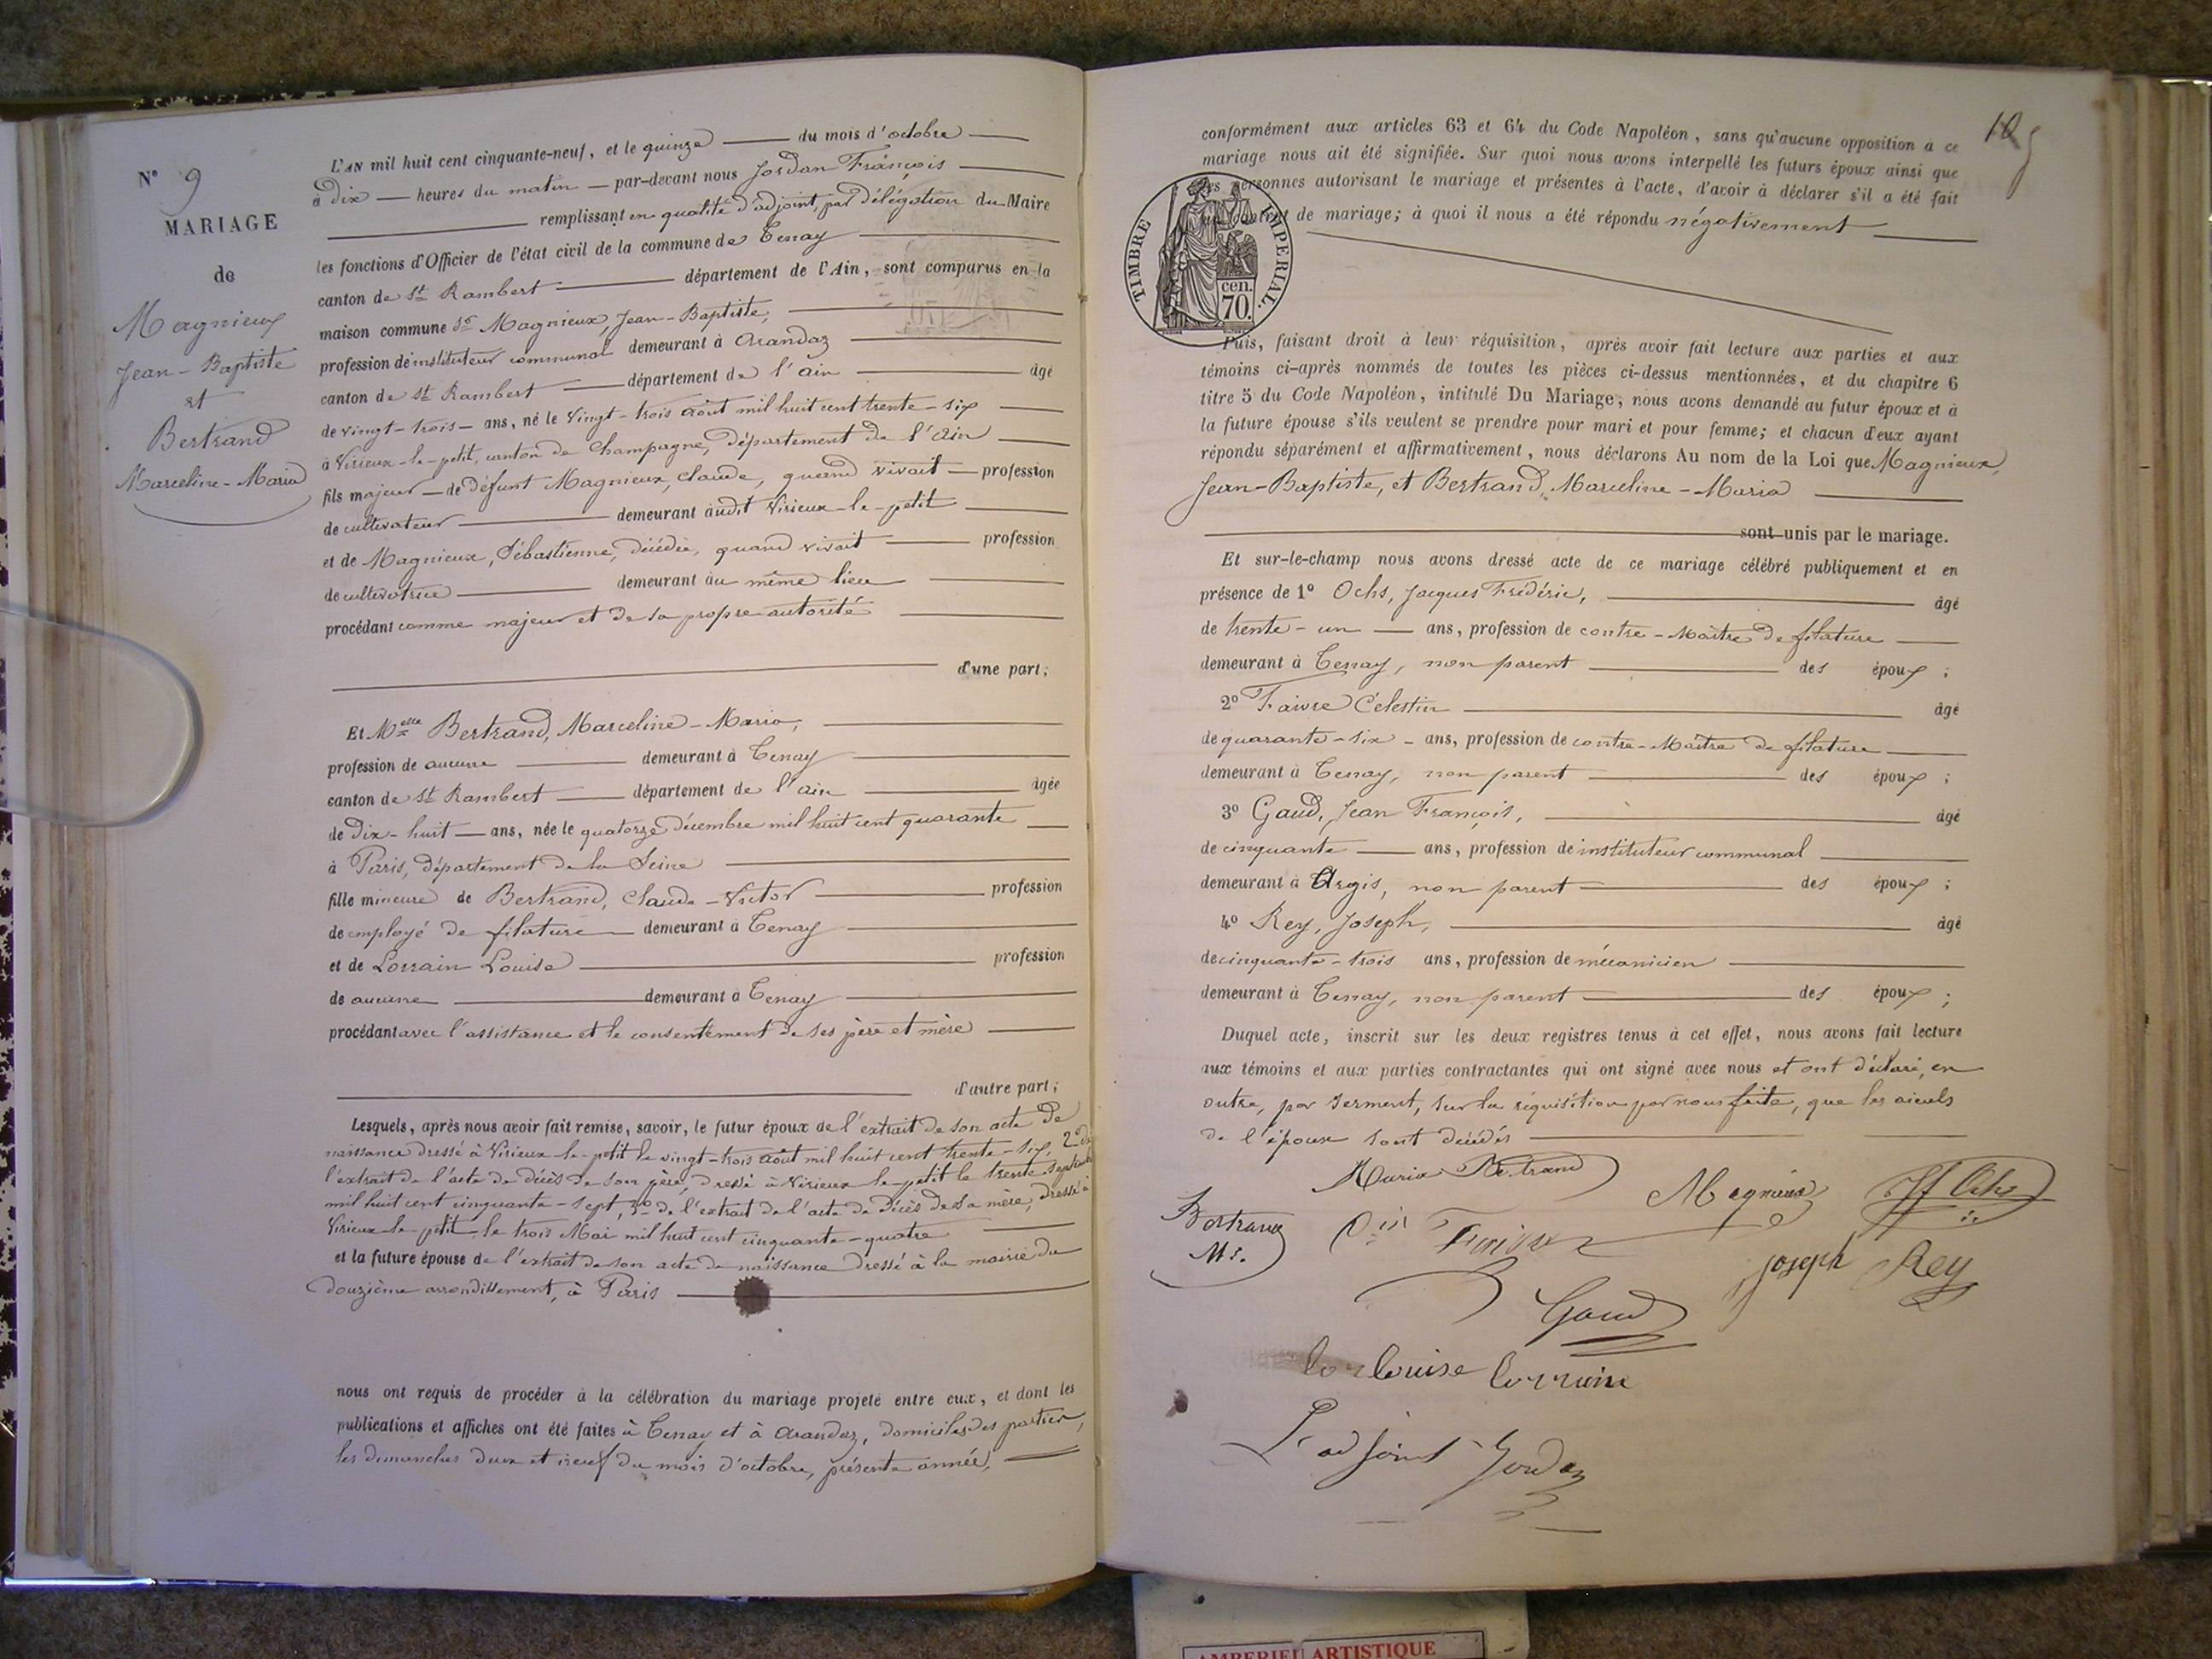 N° 9
MARIAGE
de
Magnieux
Jean-Baptiste
et
Bertrand
Marceline-Maria
L'AN mil huit cent cinquante-neuf, et le quinze du mois d'octobre
à dix heures du matin par-devant nous Jordan François
remplissant en qualité d'adjoint, par délégation du Maire
les fonctions d'Officier de l'état civil de la commune de Tenay
canton de St Rambert département de l'Ain, sont comparus en la
maison commune Sr Magnieux, Jean-Baptiste,
profession de instituteur communal demeurant à Arandaz
canton de St Rambert département de l'ain âgé
de vingt-trois ans, né le vingt-trois août mil huit cent trente-six
à Virieux-le-petit, canton de Champagne, département de l'ain
fils majeur de défunt Magnieux, Claude, quand vivait profession
de cultivateur demeurant audit Virieux-le-petit
et de Magnieux, Sébastienne, décédée, quand vivait profession
de cultivatrice demeurant au même lieu
procédant comme majeur et de sa propre autorité
d'une part;
Et Melle Bertrand, Marceline-Maria,
profession de aucune demeurant à Tenay
canton de St Rambert département de l'ain âgée
de dix-huit ans, née le quatorze décembre mil huit cent quarante
à Paris, département de la Seine
fille mineure de Bertrand, Claude-Victor profession
de employé de filature demeurant à Tenay
et de Lorrain Louise profession
de aucune demeurant à Tenay
procédant avec l'assistance et le consentement de ses père et mère
d'autre part;
Lesquels, après nous avoir fait remise, savoir, le futur époux de l'extrait de son acte de
naissance dressé à Virieux-le-petit le vingt-trois août mil huit cent trente-six, 2° de
l'extrait de l'acte de décès de son père, dressé à Virieux-le-petit le trente septembre
mil huit cent cinquante-sept, 3° de l'extrait de l'acte de décès de sa mère, dressé à
Virieux-le-petit le trois Mai mil huit cent cinquante-quatre
et la future épouse de l'extrait de son acte de naissance dressé à la mairie du
douzième arrondissement, à Paris
nous ont requis de procéder à la célébration du mariage projeté entre eux, et dont les
publications et affiches ont été faites à Tenay et à Arandaz, domiciles des parties,
les dimanches deux et neuf du mois d'octobre, présente année,
10
conformément aux articles 63 et 64 du Code Napoléon, sans qu'aucune opposition à ce
mariage nous ait été signifiée. Sur quoi nous avons interpellé les futurs époux ainsi que
les personnes autorisant le mariage et présentes à l'acte, d'avoir à déclarer s'il a été fait
un contrat de mariage; à quoi il nous a été répondu négativement
TIMBRE IMPERIAL.
cen.
70.
Puis, faisant droit à leur réquisition, après avoir fait lecture aux parties et aux
témoins ci-après nommés de toutes les pièces ci-dessus mentionnées, et du chapitre 6
titre 5 du Code Napoléon, intitulé Du Mariage, nous avons demandé au futur époux et à
la future épouse s'ils veulent se prendre pour mari et pour femme; et chacun d'eux ayant
répondu séparément et affirmativement, nous déclarons Au nom de la Loi que Magnieux,
Jean-Baptiste, et Bertrand, Marceline-Maria
sont unis par le mariage.
Et sur-le-champ nous avons dressé acte de ce mariage célébré publiquement et en
présence de 1° Ochs, Jacques Frédéric, âgé
de trente-un ans, profession de contre-Maître de filature
demeurant à Tenay, non parent des époux;
2° Faivre Célestin âgé
de quarante-six ans, profession de contre-Maître de filature
demeurant à Tenay, non parent des époux;
3° Gaud, Jean François, âgé
de cinquante ans, profession de instituteur communal
demeurant à Argis, non parent des époux;
4° Rey, Joseph, âgé
de cinquante-trois ans, profession de mécanicien
demeurant à Tenay, non parent des époux;
Duquel acte, inscrit sur les deux registres tenus à cet effet, nous avons fait lecture
aux témoins et aux parties contractantes qui ont signé avec nous et ont déclaré, en
outre, par serment, sur la réquisition par nous faite, que les aïeuls
de l'épouse sont décédés
Maria Bertrand
Magnieux
JF Ochs
Bertrand
Faivre
Joseph Rey
Gaud
Louise Lorraine
L'adjoint Jordan
AMBERIEU ARTISTIQUE